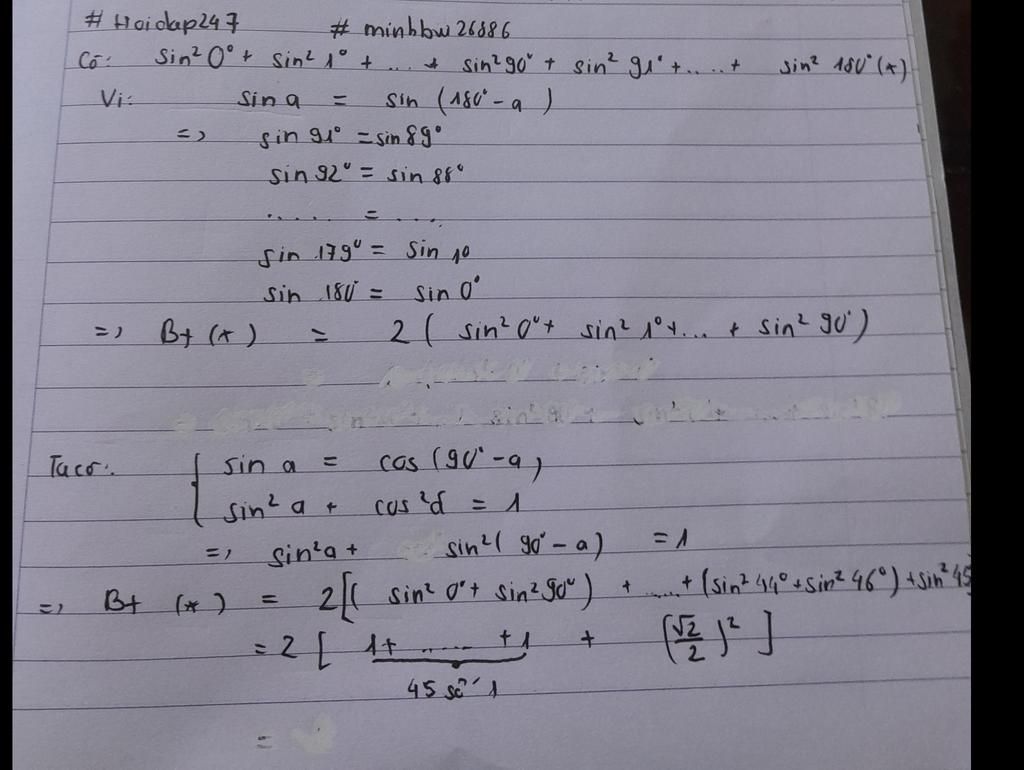 # Hoidap247 # minhbw26886
Có: sin² 0° + sin² 1° + .... + sin² 90° + sin² 91° + ..... + sin² 180° (*)
Vì: sin a = sin (180° - a)
=> sin 91° = sin 89°
sin 92° = sin 88°
..... = ....
sin 179° = sin 1°
sin 180° = sin 0°
=> Bt (*) = 2 ( sin² 0° + sin² 1° + ... + sin² 90°)
Ta có: { sin a = cos (90° - a)
sin² a + cos² d = 1
=> sin² a + sin² ( 90° - a) = 1
=> Bt (*) = 2[( sin² 0° + sin² 90°) + ..... + (sin² 44° + sin² 46°) + sin² 45
= 2 [ 1 + ..... + 1 + (√2/2)² ]
45 số 1
=